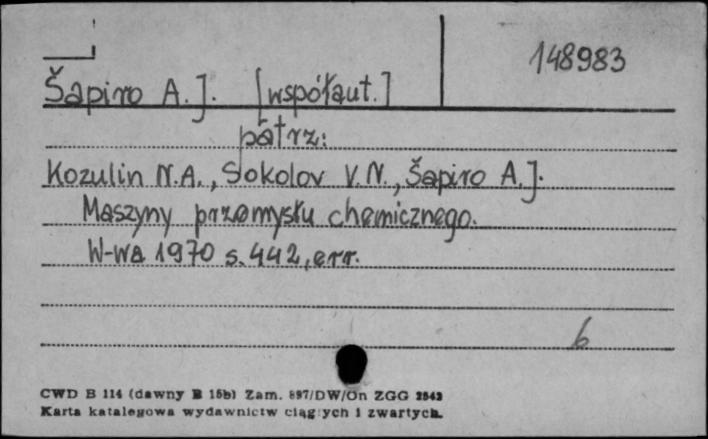 148983
Šapiro A.J. [współaut.]
patrz:
Kozulin N.A., Sokolov V.N., Šapiro A.J.
Maszyny przemysłu chemicznego.
W-wa 1970 s. 442, err.
b
CWD B 114 (dawny B 15b) Zam. 897/DW/On ZGG 2542
Karta katalogowa wydawnictw ciągłych i zwartych.